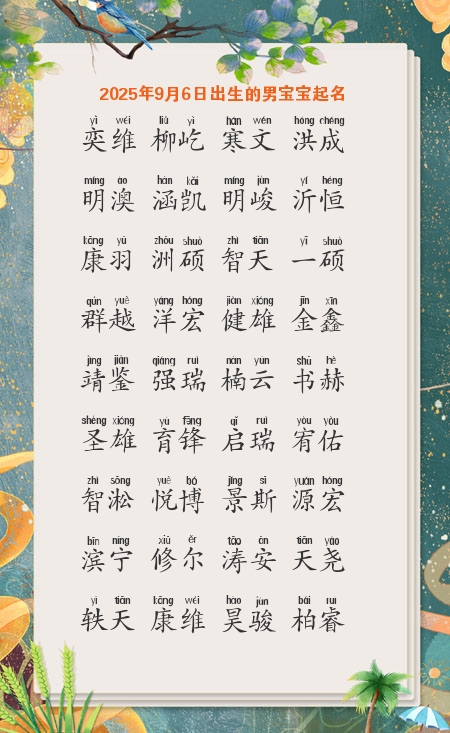 2025年9月6日出生的男宝宝起名
yì wéi liǔ yì hán wén hóng chéng
奕维 柳屹 寒文 洪成
míng ào hán kǎi míng jùn yí héng
明澳 涵凯 明峻 沂恒
kāng yǔ zhōu shuò zhì tiān yī shuò
康羽 洲硕 智天 一硕
qún yuè yáng hóng jiàn xióng jīn xīn
群越 洋宏 健雄 金鑫
jìng jiàn qiáng ruì nán yún shū hè
靖鉴 强瑞 楠云 书赫
shèng xióng yù fēng qǐ ruì yòu yòu
圣雄 育锋 启瑞 宥佑
zhì sōng yuè bó jǐng sī yuán hóng
智淞 悦博 景斯 源宏
bīn níng xiū ěr tāo ān tiān yáo
滨宁 修尔 涛安 天尧
yì tiān kāng wéi hào jùn bǎi ruì
轶天 康维 昊骏 柏睿